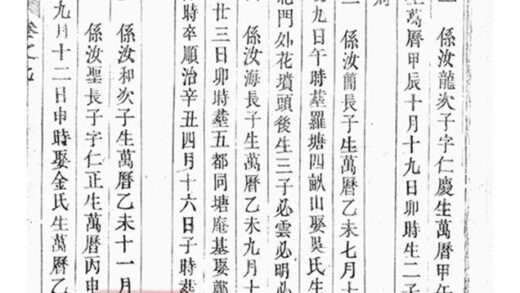 係汝龍次子字仁慶生萬曆甲午
萬曆甲辰十月十九日卯時生二子
係汝蘭長子生萬曆乙未七月十
九日午時葬羅塘四畝山娶吳氏生
北門外花墳頭後生三子必雲必明必
係汝海長子生萬曆乙未九月十
廿三日卯時葬五都同塘庵基娶鄭
時卒順治辛丑四月十六日子時葬
係汝和次子生萬曆乙未十一月
係汝聖長子字仁正生萬曆丙申
九月十二日申時娶金氏生萬曆乙
卷之九